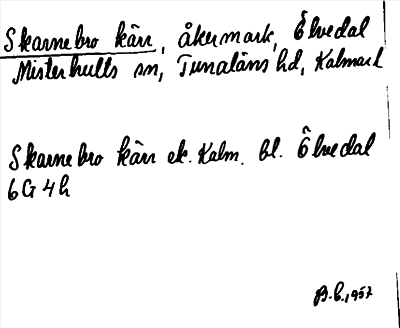 Skarnebro kärr, åkermark, Ölvedal
Misterhults sn, Tunaläns hd, Kalmar l
Skarnebro kärr ek. Kalm. bl. Ölvedal
6G4h
B.C., 1957